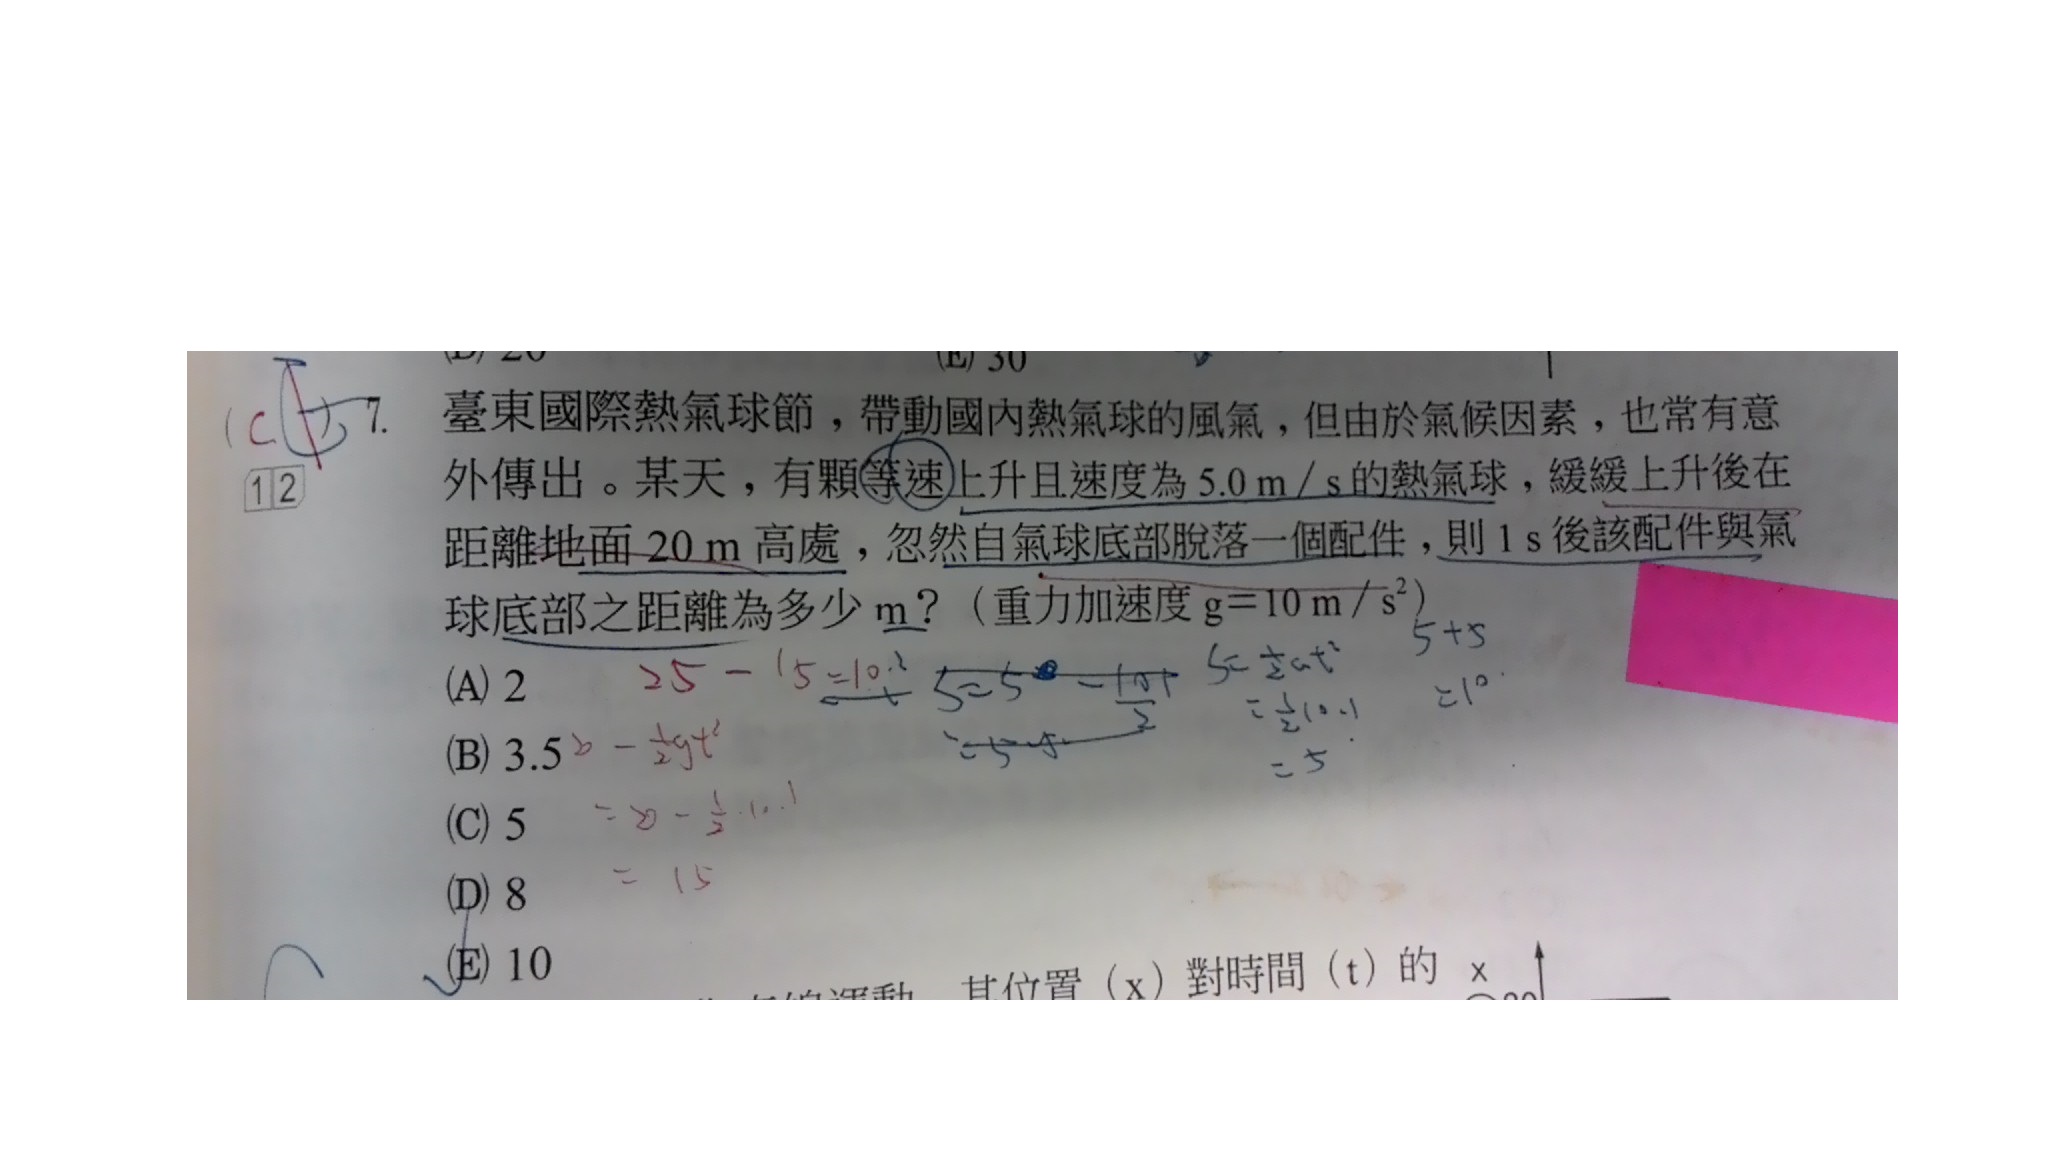 (D) 20 (E) 30
(C) 7. 臺東國際熱氣球節，帶動國內熱氣球的風氣，但由於氣候因素，也常有意
12 外傳出。某天，有顆等速上升且速度為 5.0 m／s 的熱氣球，緩緩上升後在
距離地面 20 m 高處，忽然自氣球底部脫落一個配件，則 1 s 後該配件與氣
球底部之距離為多少 m？（重力加速度 g＝10 m／s²）
(A) 2 25 - 15 = 10 S= ½at² 5+5
= ½10·1 =10
(B) 3.5 20 - ½gt² = 5
(C) 5 = 20 - ½·10·1
(D) 8 = 15
(E) 10
其位置（x）對時間（t）的 x